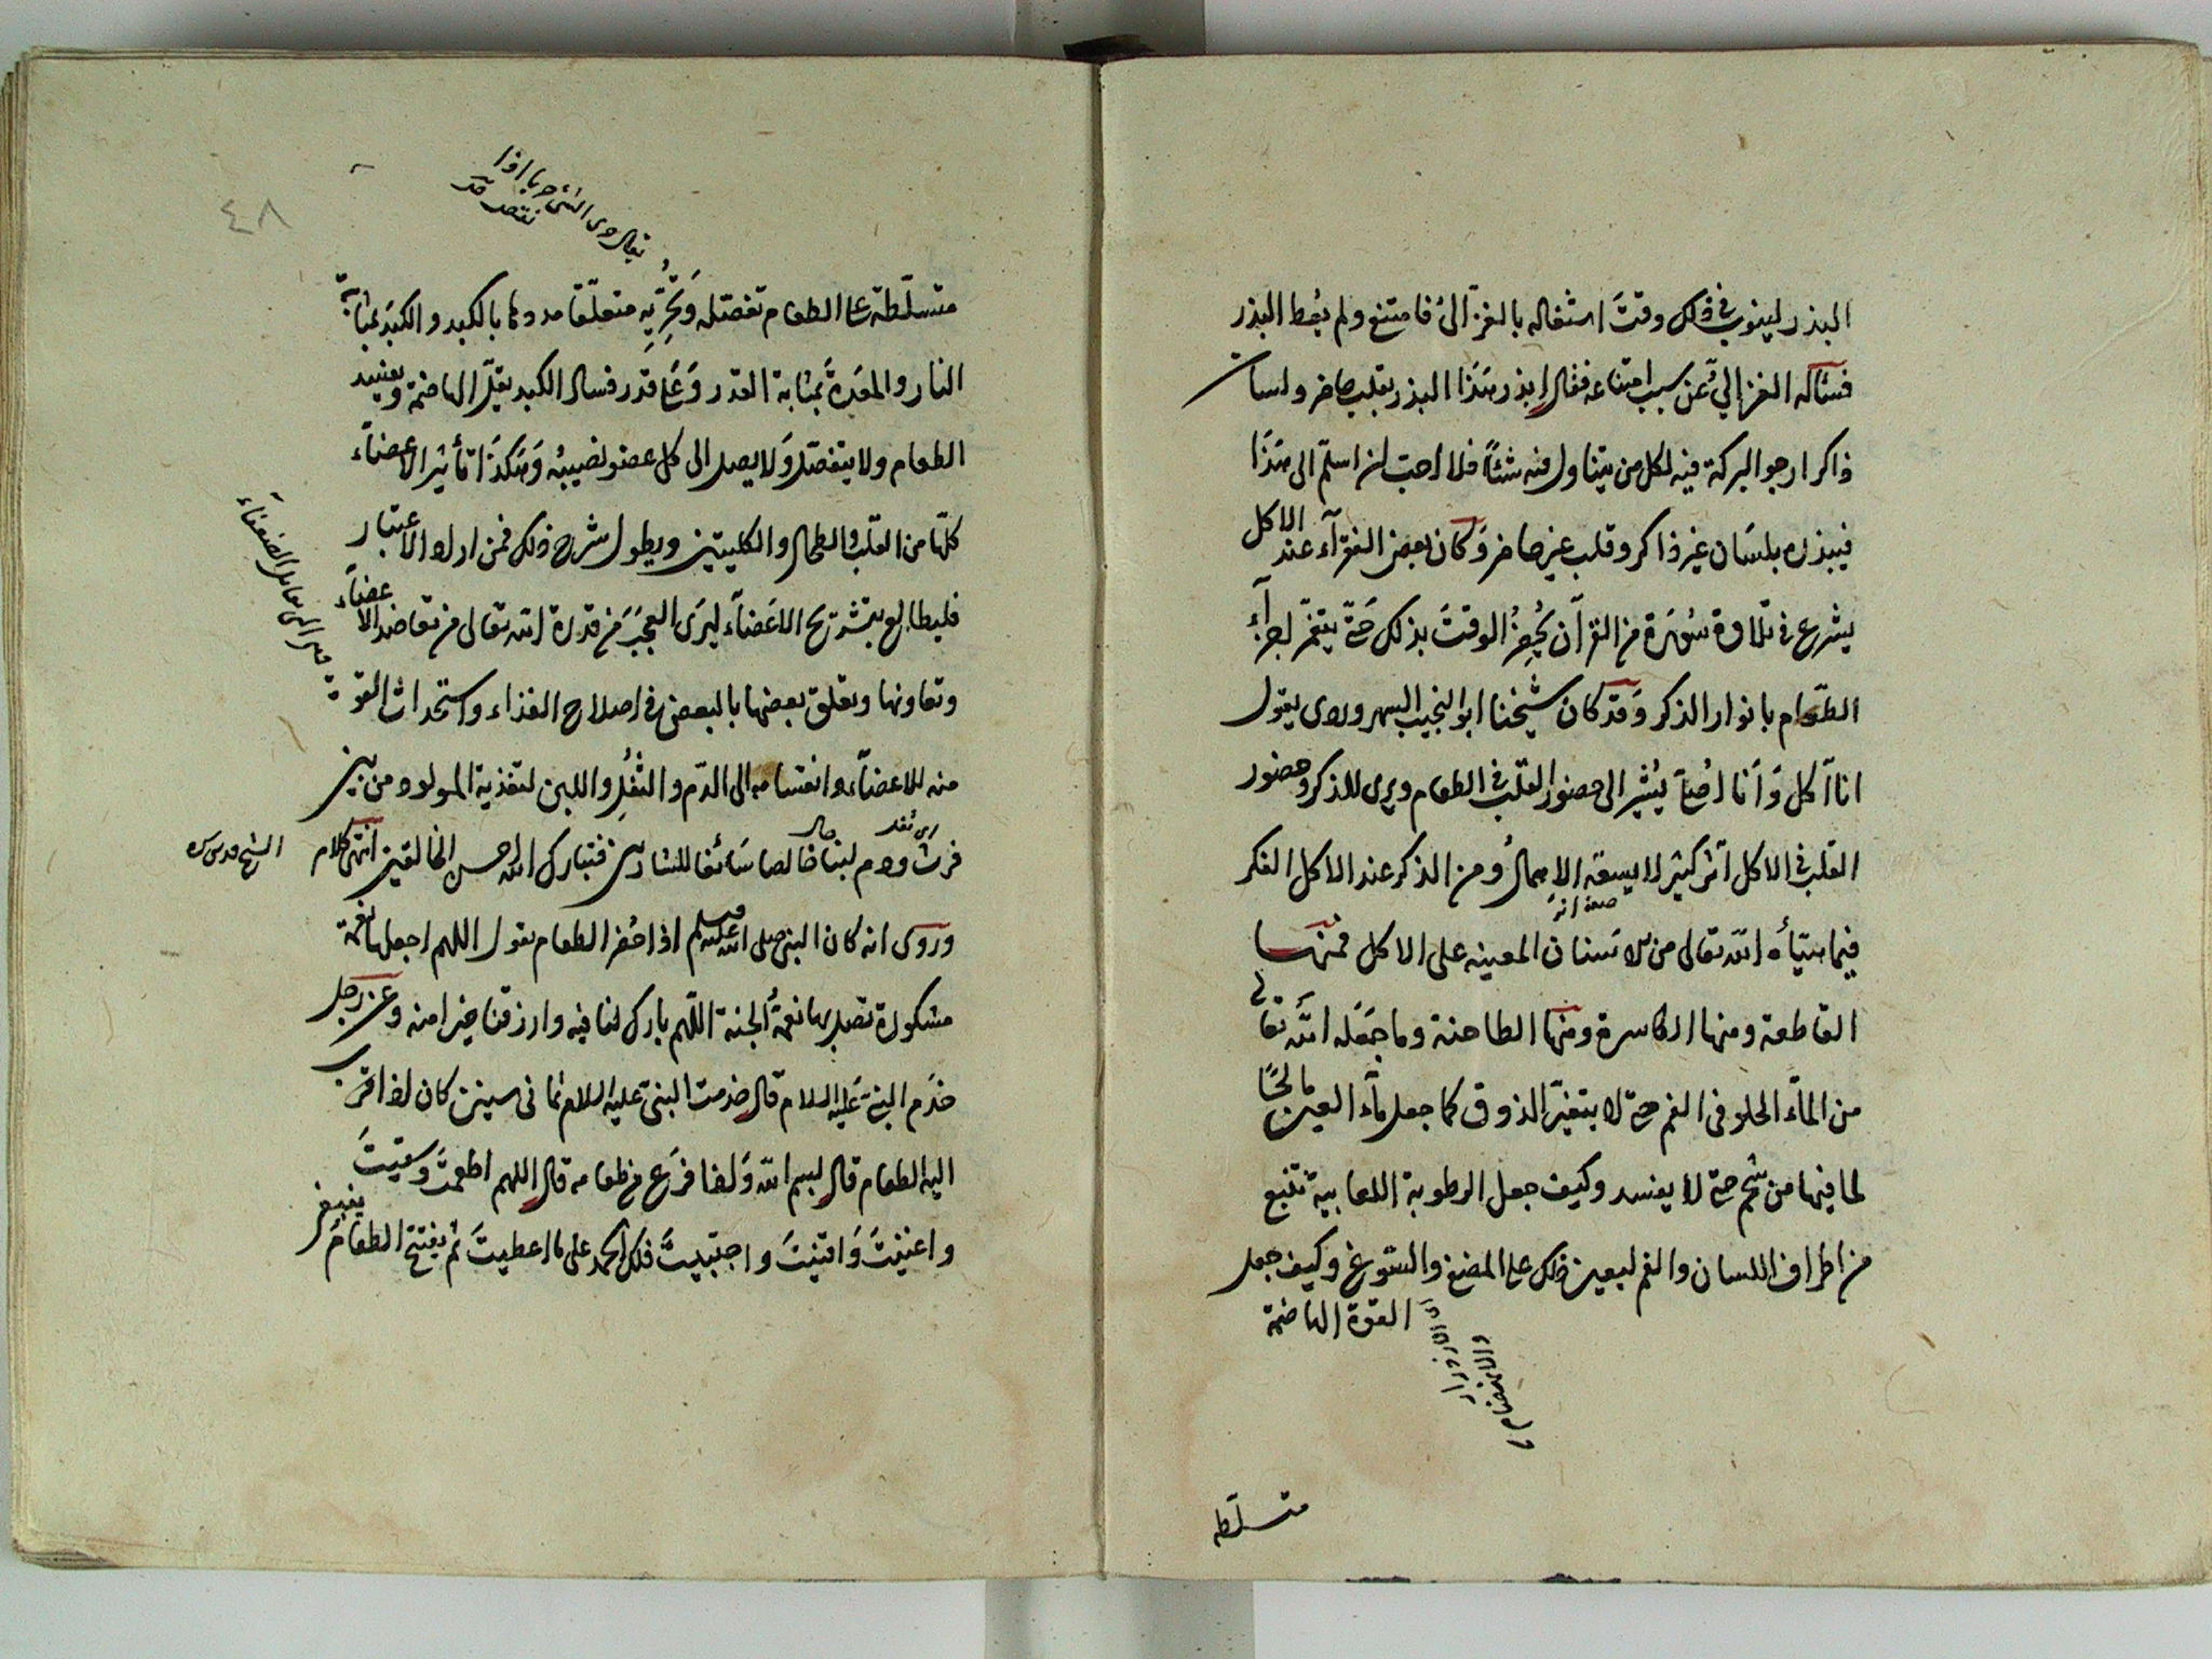 البذر لينوب في ذلك وقتَ اشتغاله بالغزالى فامتنع ولم يعُط البذر
فسأله الغزالي عن سبب امتناعه فقال ابذر هَذا البذر بقلب حاضر ولسان
ذاكر ارجو البركة فيه لكل من يتناول منه شئاً فلا احب ان اسلّم الى هَذا
فيبذره بلسَان غير ذاكر وقلب غير حاضر وَكان بعض الفقرآء عند الاكل
يشرع في تلاوة سُورَة من القرآن يُحضِرُ الوقتَ بذلك حَتّى ينغمر اجزآء
الطّعام بانوار الذكر وَقد كان شيخنا ابو النجيب السهروردى يقول
انا آكل وَاَنا اُصَلّى يُشير الى حضور القلب في الطعام ويرى للذكر وحضور
القلب في الاكل اثر كثير لا يسعه الاهمالُ ومن الذكر عند الاكل الفكر
فيما هيّأه الله تعالى من الاَسنان المعينه على الاكل فمنهَا
القاطعة ومنها الكاسرة ومنها الطاحنة وما جَعَله الله تعالى
من المآء الحلو فى الفم حتى لا يتغير الذوق كما جعل مآء العين مالحًا
لما فيها من شحم حتى لا يفسد وكيف جعل الرطوبة اللعابية تنبع
من اطراف اللسان والفم ليعين ذلك على المضغ والسوغ وكيف جعل
القوة الهاضمة
متسلّطه
٤٨
يقال روى الشئ حربا اذا
نقص
متسلّطة على الطعام تفصّله وَتُجَرِّيه متعلّقا مددها بالكبد والكبد بمثابة
النار والمعِدة بمثابة القدر وَعَلى قدر فساد الكبد يقلّ الهاضمة ويفسد
الطعام ولا ينفصل وَلا يصل الى كل عضو نصيبُه وَهَكذَا تأثير الاعضآء
كلّها من القلب والطحال والكليتين ويطول شرح ذلك فمن اراد الاعتبار
فليطالع بتشريح الاَعضآء ليرَى العجبَ من قدرة الله تعالى من تعاضد الاعضآء
وتعاونها وتعلق بعضها بالبعض في اصلاح الغذاء واستجذاب القوة
منه للاعضآء وانقسامه الى الدّم والثُفْلِ واللبن لتغذية المولود من بين
فرث ودم لبنا خالصا سَائغا للشاربين فتبارك الله احسن الخالقين انتهى كلام
الشيخ قدس سره
وروى انه كان النبى صلى الله عليه وسلم اذا حُضر الطعام يقول اللهم اجعلها نعمة
مشكورة تصل بها نعمةُ الجنة اللّهم بارك لنا فيه وارزقنا خيرا منه وعن رجل
خدَم النبىّ عَليه السلام قال خدمت النبى عليه السلام ثمانى سنين كان اذا قرب
اليه الطعام قال بسم الله وَاذا فرَغ من طعامه قال اللهم اطعمتَ وسقيتَ
واغنيتَ وَاقنيتَ واجتبيتَ فلك الحمد على ما اعطيتَ ثم يفتتح الطعامَ